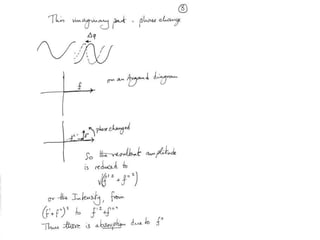 8
This imaginary part - phase change
Δφ
on an Argand diagram
f
f' f" phase changed
So the resultant amplitude
is reduced to
√(f'² + f"²)
or the Intensity, from
(f'+f")² to f'² + f"²
Thus there is absorption due to f"